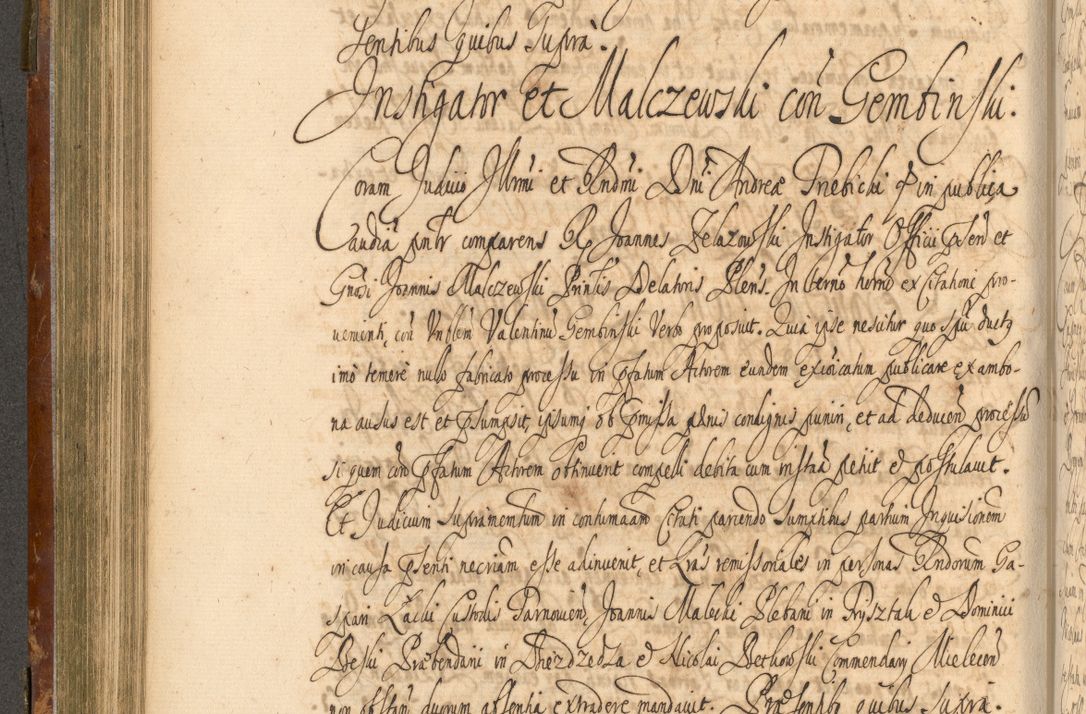 sentibus quibus supra.
Instigator et Malczewski con Gembinski.
Coram Judicio Illrmi et Rndmi Dni Andreæ Trzebicki & in publica
Audia pntr comparens Rp Joannes Zelazowski Instigator Officii psen et
Gnosi Joannis Malczewski Prinlis Delatoris Plens. In termo horno ex Citatione pro-
uementi, con Vnblem Valentinu Gembinski Verbo proposuit. Quia ipse nescitur quo spu ductq
imo temere nullo fabricato processu in pfatum Actorem eundem exioicatum publicare ex ambo-
na ausus est et psumpsit, ipsumq ob pmissa pænis condignis puniri, et ad deducen processu
si quem con pfatum Actorem obtinuerit compelli debita cum instan petiit & postulauit.
Et Judicium supramemtum in contumaam Citati parcendo sumptibus partium Inquisionem
in causa psenti necriam esse adinuenit, et Lras remissoriales in personas Rndorum Ga-
spari Łacki Custodis Tarnouien, Joannis Malecki Plebani in Frysztak & Dominici
Beski Præbendarii in Dzieżdzedza & Nicolai Betkowski Commendarij Mielecen
non obstan duorum absentia extradere mandauit. Præsentib quibus supra.